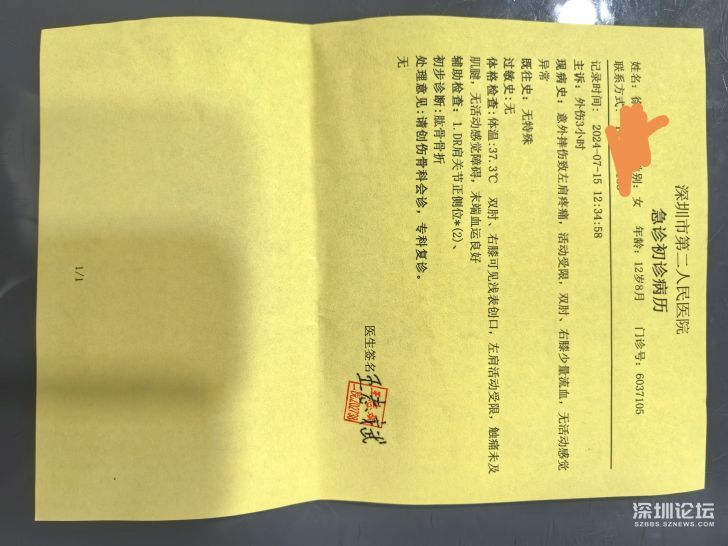 深圳市第二人民医院
急诊初诊病历
姓名：徐 别：女 年龄：12岁8月 门诊号：6037105
联系方式：
记录时间：2024-07-15 12:34:58
主诉：外伤3小时
现病史：意外摔伤致左肩疼痛，活动受限，双肘、右膝少量流血，无活动感觉
异常
既往史：无特殊
过敏史：无
体格检查：体温:37.3℃ 双肘、右膝可见浅表创口，左肩活动受限，触痛未及
肌腱，无活动感觉障碍，末端血运良好
辅助检查：1.DR肩关节正侧位*(2)、
初步诊断：肱骨骨折
处理意见：请创伤骨科会诊，专科复诊。
无
医生签名
1/1
深圳论坛
SZBBS.SZNEWS.COM